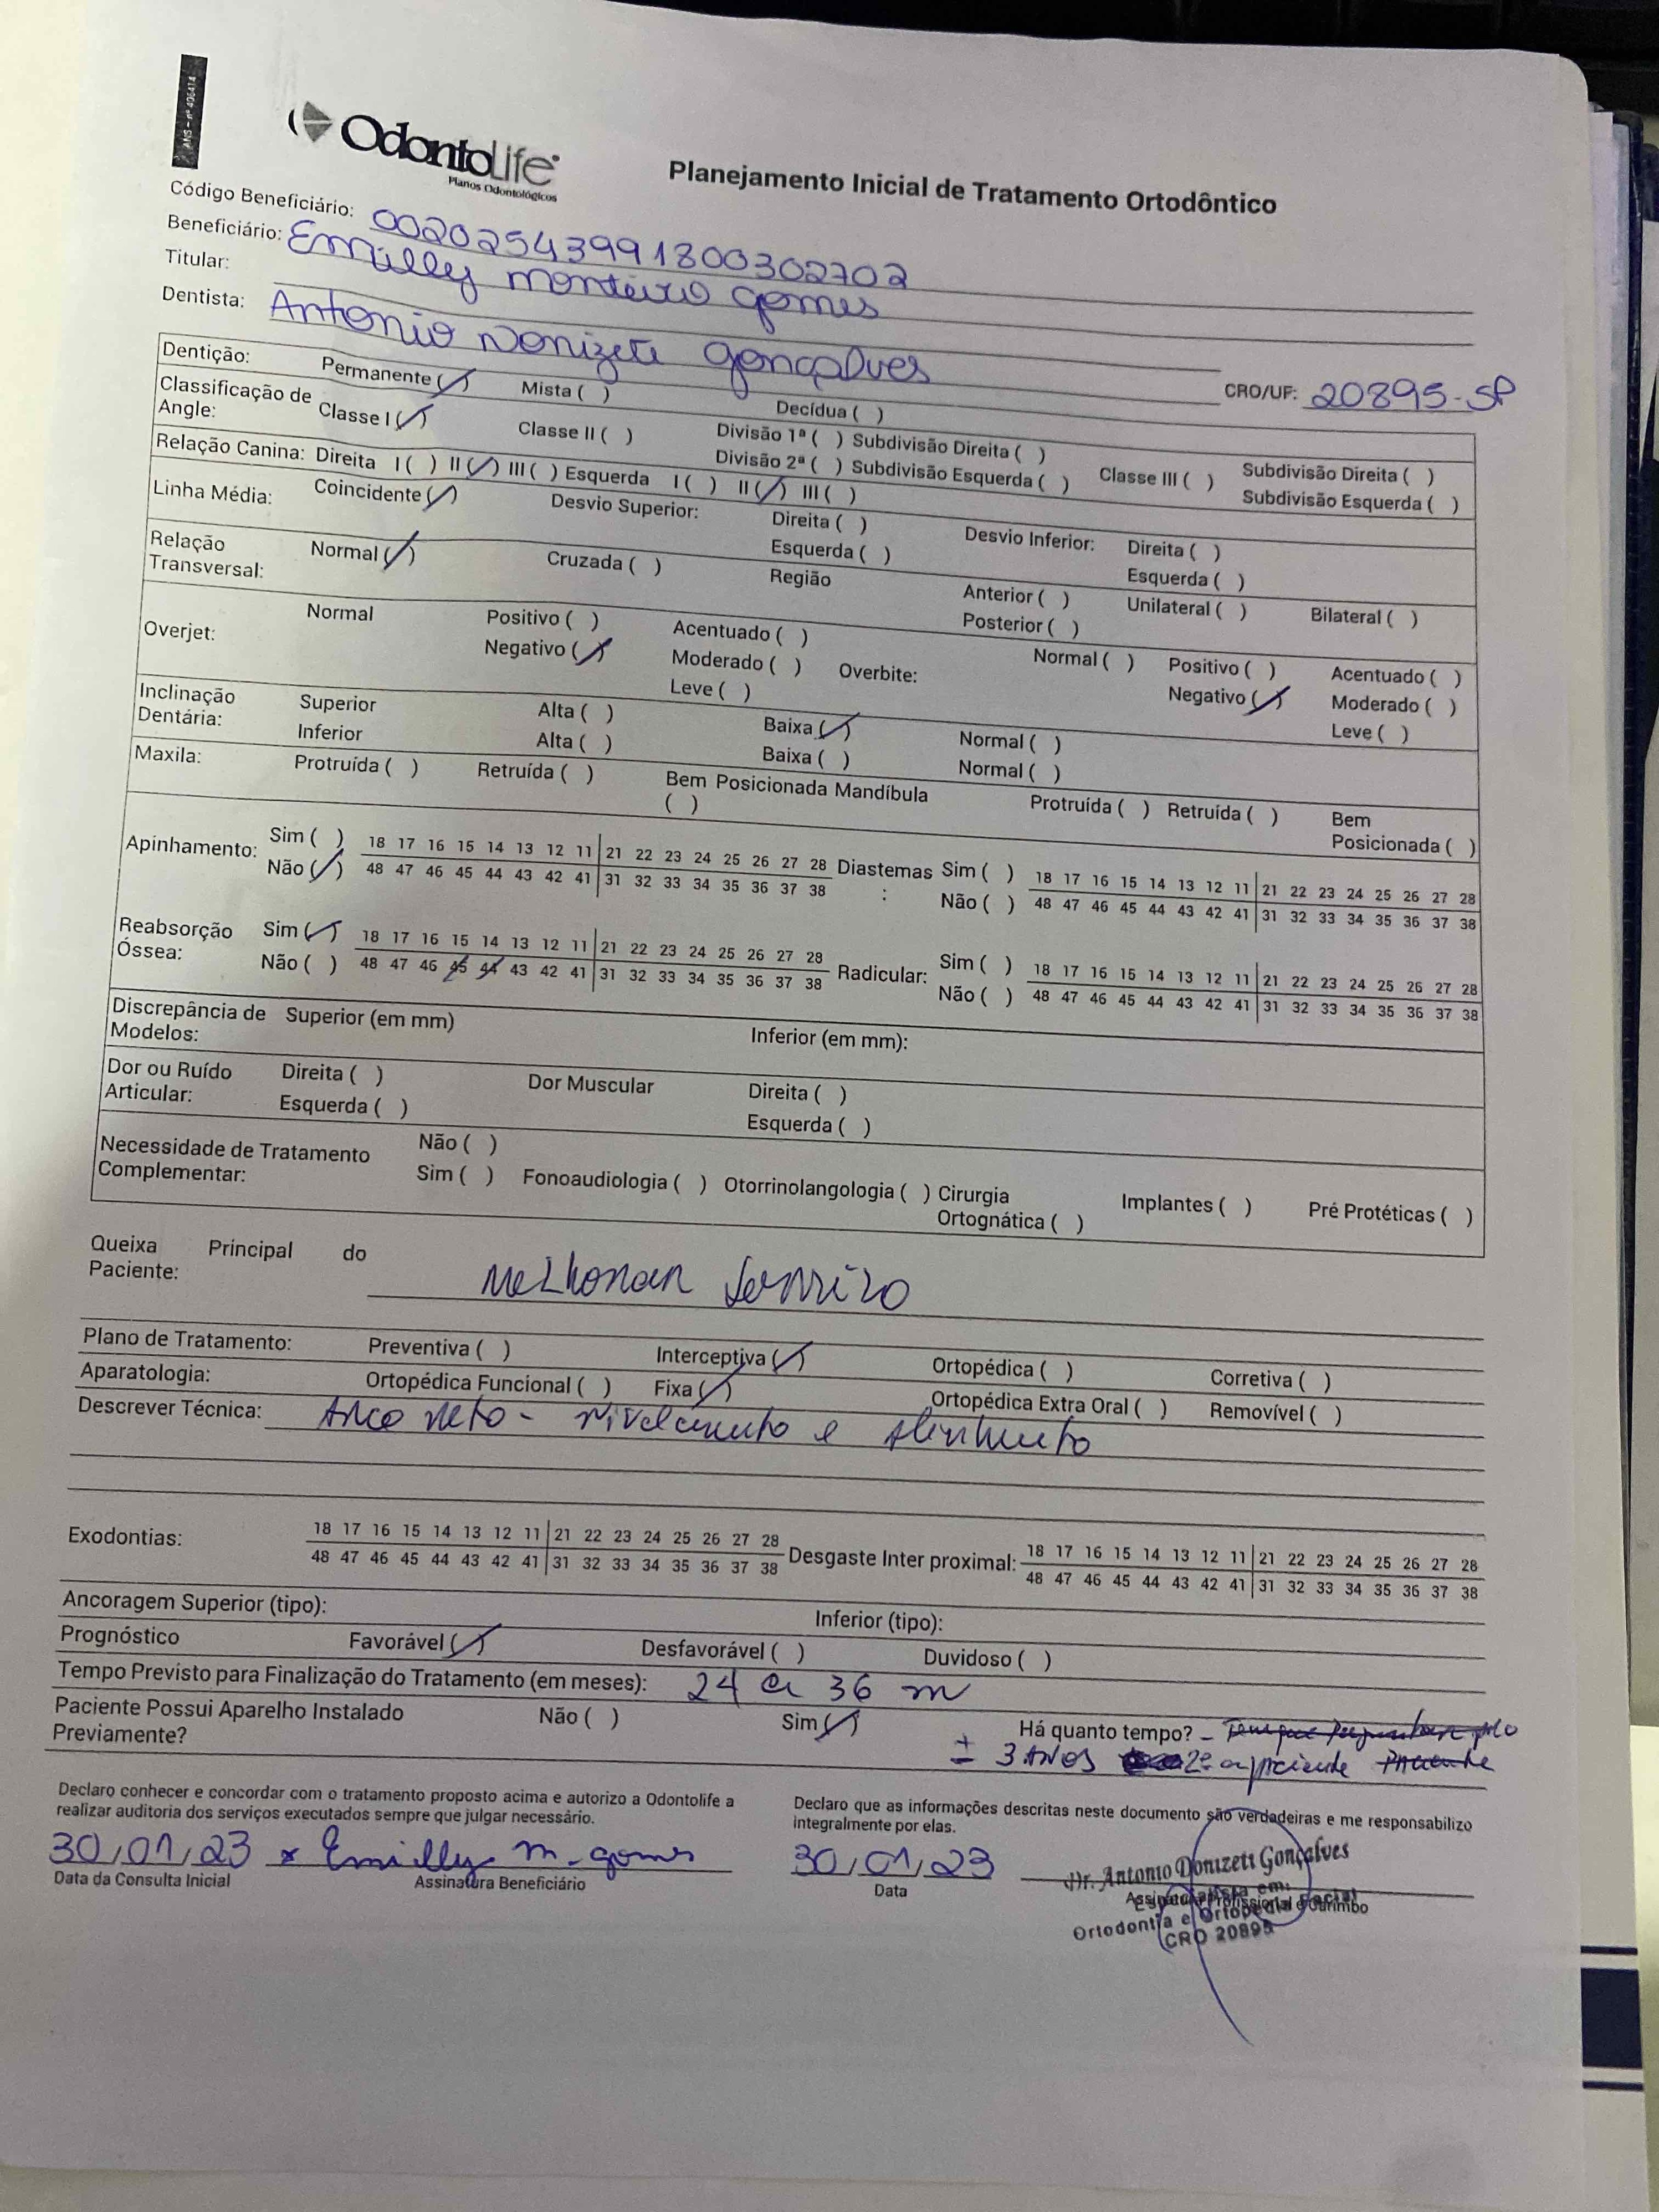 ANS - nº 406414
OdontoLife
Planos Odontológicos
Planejamento Inicial de Tratamento Ortodôntico
Código Beneficiário: 00202543991800302702
Beneficiário: Emilly monteiro gomes
Titular:
Dentista: Antonio Donizeti gonçalves CRO/UF: 20895-SP
Dentição: Permanente (/) Mista ( ) Decídua ( )
Classificação de Angle: Classe I (/) Classe II ( ) Divisão 1ª ( ) Subdivisão Direita ( ) Divisão 2ª ( ) Subdivisão Esquerda ( ) Classe III ( ) Subdivisão Direita ( ) Subdivisão Esquerda ( )
Relação Canina: Direita I ( ) II (/) III ( ) Esquerda I ( ) II (/) III ( )
Linha Média: Coincidente (/) Desvio Superior: Direita ( ) Esquerda ( ) Desvio Inferior: Direita ( ) Esquerda ( )
Relação Transversal: Normal (/) Cruzada ( ) Região Anterior ( ) Posterior ( ) Unilateral ( ) Bilateral ( )
Overjet: Normal Positivo ( ) Negativo (/) Acentuado ( ) Moderado ( ) Leve ( ) Overbite: Normal ( ) Positivo ( ) Negativo (/) Acentuado ( ) Moderado ( ) Leve ( )
Inclinação Dentária: Superior Alta ( ) Baixa (/) Normal ( )
Inferior Alta ( ) Baixa ( ) Normal ( )
Maxila: Protruída ( ) Retruída ( ) Bem Posicionada ( ) Mandíbula Protruída ( ) Retruída ( ) Bem Posicionada ( )
Apinhamento: Sim ( ) 18 17 16 15 14 13 12 11 21 22 23 24 25 26 27 28 Diastemas : Sim ( ) 18 17 16 15 14 13 12 11 21 22 23 24 25 26 27 28
Não (/) 48 47 46 45 44 43 42 41 31 32 33 34 35 36 37 38 Não ( ) 48 47 46 45 44 43 42 41 31 32 33 34 35 36 37 38
Reabsorção Óssea: Sim (/) 18 17 16 15 14 13 12 11 21 22 23 24 25 26 27 28 Radicular: Sim ( ) 18 17 16 15 14 13 12 11 21 22 23 24 25 26 27 28
Não ( ) 48 47 46 45 44 43 42 41 31 32 33 34 35 36 37 38 Não ( ) 48 47 46 45 44 43 42 41 31 32 33 34 35 36 37 38
Discrepância de Modelos: Superior (em mm) Inferior (em mm):
Dor ou Ruído Articular: Direita ( ) Esquerda ( ) Dor Muscular Direita ( ) Esquerda ( )
Necessidade de Tratamento Complementar: Não ( )
Sim ( ) Fonoaudiologia ( ) Otorrinolangologia ( ) Cirurgia Ortognática ( ) Implantes ( ) Pré Protéticas ( )
Queixa Principal do Paciente: Melhorar Sorrizo
Plano de Tratamento: Preventiva ( ) Interceptiva (/) Ortopédica ( ) Corretiva ( )
Aparatologia: Ortopédica Funcional ( ) Fixa (/) Ortopédica Extra Oral ( ) Removível ( )
Descrever Técnica: Arco Reto - nivelamento e Alinhamento
Exodontias: 18 17 16 15 14 13 12 11 21 22 23 24 25 26 27 28 Desgaste Inter proximal: 18 17 16 15 14 13 12 11 21 22 23 24 25 26 27 28
48 47 46 45 44 43 42 41 31 32 33 34 35 36 37 38 48 47 46 45 44 43 42 41 31 32 33 34 35 36 37 38
Ancoragem Superior (tipo): Inferior (tipo):
Prognóstico Favorável (/) Desfavorável ( ) Duvidoso ( )
Tempo Previsto para Finalização do Tratamento (em meses): 24 a 36 m
Paciente Possui Aparelho Instalado Previamente? Não ( ) Sim (/) Há quanto tempo? -
± 3 Anos paciente
Declaro conhecer e concordar com o tratamento proposto acima e autorizo a Odontolife a
realizar auditoria dos serviços executados sempre que julgar necessário.
Declaro que as informações descritas neste documento são verdadeiras e me responsabilizo
integralmente por elas.
30/01/23 x Emilly m. gomes 30/01/23
Data da Consulta Inicial Assinatura Beneficiário Data Assinatura Profissional e Carimbo
Dr. Antonio Donizeti Gonçalves
Especialista em:
Ortodontia e Ortopedia Facial
CRO 20895